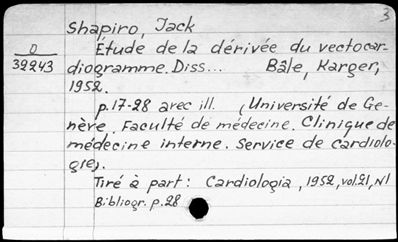 3
Shapiro, Jack
O
39243
Étude de la dérivée du vectocar-
diogramme. Diss... Bâle, Karger,
1952.
p.17-28 avec ill. (Université de Ge-
nève. Faculté de médecine. Clinique de
médecine interne. Service de cardiolo-
gie).
Tiré à part: Cardiologia, 1952, vol.21, N1
Bibliogr. p.28